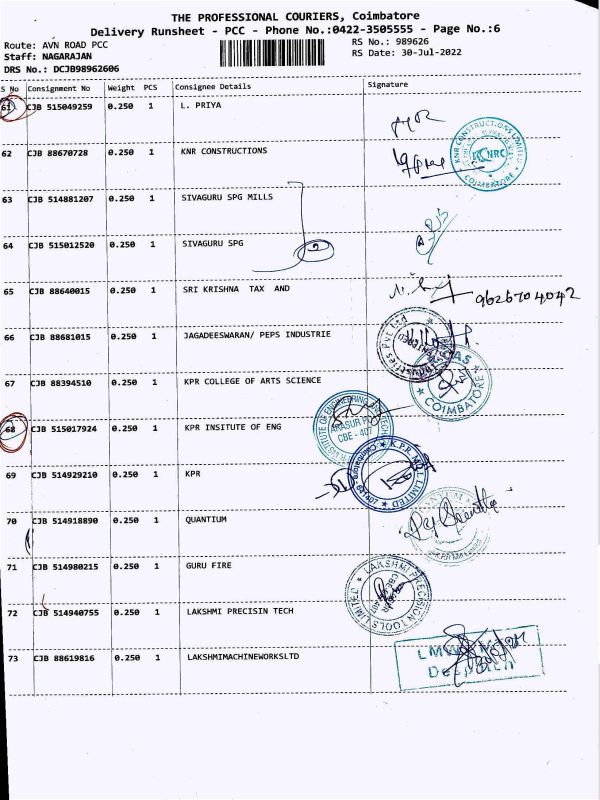 THE PROFESSIONAL COURIERS, Coimbatore
Delivery Runsheet - PCC - Phone No.:0422-3505555 - Page No.:6
Route: AVN ROAD PCC
RS No.: 989626
Staff: NAGARAJAN
RS Date: 30-Jul-2022
DRS No.: DCJB98962606
S No Consignment No Weight PCS Consignee Details Signature
61 CJB 515049259 0.250 1 L. PRIYA
62 CJB 88670728 0.250 1 KNR CONSTRUCTIONS
KNR CONSTRUCTIONS LIMITED
KNRC
COIMBATORE
63 CJB 514881207 0.250 1 SIVAGURU SPG MILLS
64 CJB 515012520 0.250 1 SIVAGURU SPG
2
65 CJB 88640015 0.250 1 SRI KRISHNA TAX AND
9626704042
66 CJB 88681015 0.250 1 JAGADEESWARAN/ PEPS INDUSTRIE
Industries Pvt Ltd
67 CJB 88394510 0.250 1 KPR COLLEGE OF ARTS SCIENCE
COIMBATORE
68 CJB 515017924 0.250 1 KPR INSITUTE OF ENG
INSTITUTE OF ENGINEERING AND TECH
CBE - 407
69 CJB 514929210 0.250 1 KPR
K.P.R. MILL LIMITED
70 CJB 514918890 0.250 1 QUANTIUM
71 CJB 514980215 0.250 1 GURU FIRE
72 CJB 514940755 0.250 1 LAKSHMI PRECISIN TECH
LAKSHMI PRECISION TOOLS LIMITED
73 CJB 88619816 0.250 1 LAKSHMIMACHINEWORKSLTD